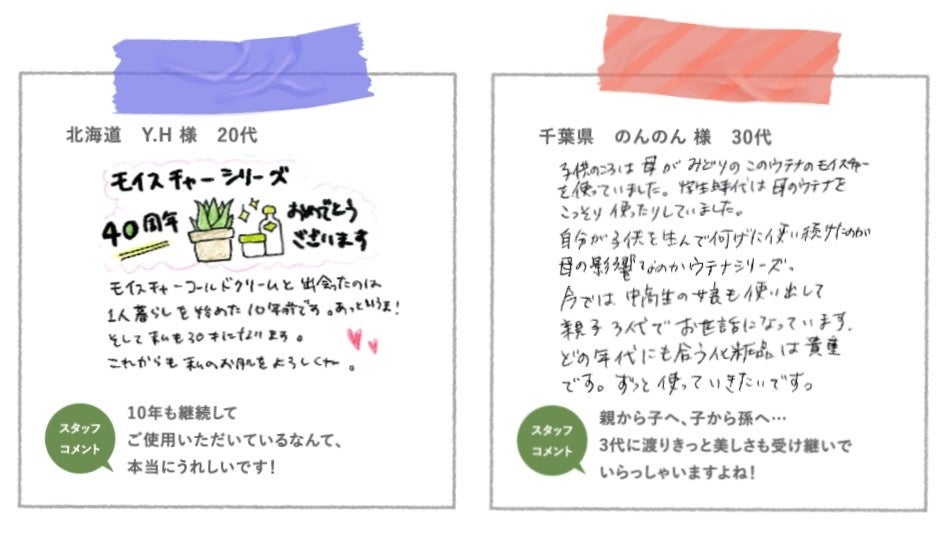 北海道　Y.H 様　20代
モイスチャーシリーズ
40周年
おめでとう
ございます
モイスチャーコールドクリームと出会ったのは
1人暮らしを始めた10年前です。あっという間！
そして私も30才になります。
これからも私のお肌をよろしくね。
スタッフ
コメント
10年も継続して
ご使用いただいているなんて、
本当にうれしいです！
千葉県　のんのん 様　30代
子供のころは 母が みどりの このウテナのモイスチャー
を使っていました。学生時代は 母のウテナを
こっそり 使ったりしていました。
自分が子供を生んで何げに使い続けたのが
母の影響なのかウテナシリーズ。
今では 中高生の娘も使い出して
親子3代でお世話になっています。
どの年代にも合う化粧品は貴重
です。ずっと使っていきたいです。
スタッフ
コメント
親から子へ、子から孫へ…
3代に渡りきっと美しさも受け継いで
いらっしゃいますよね！